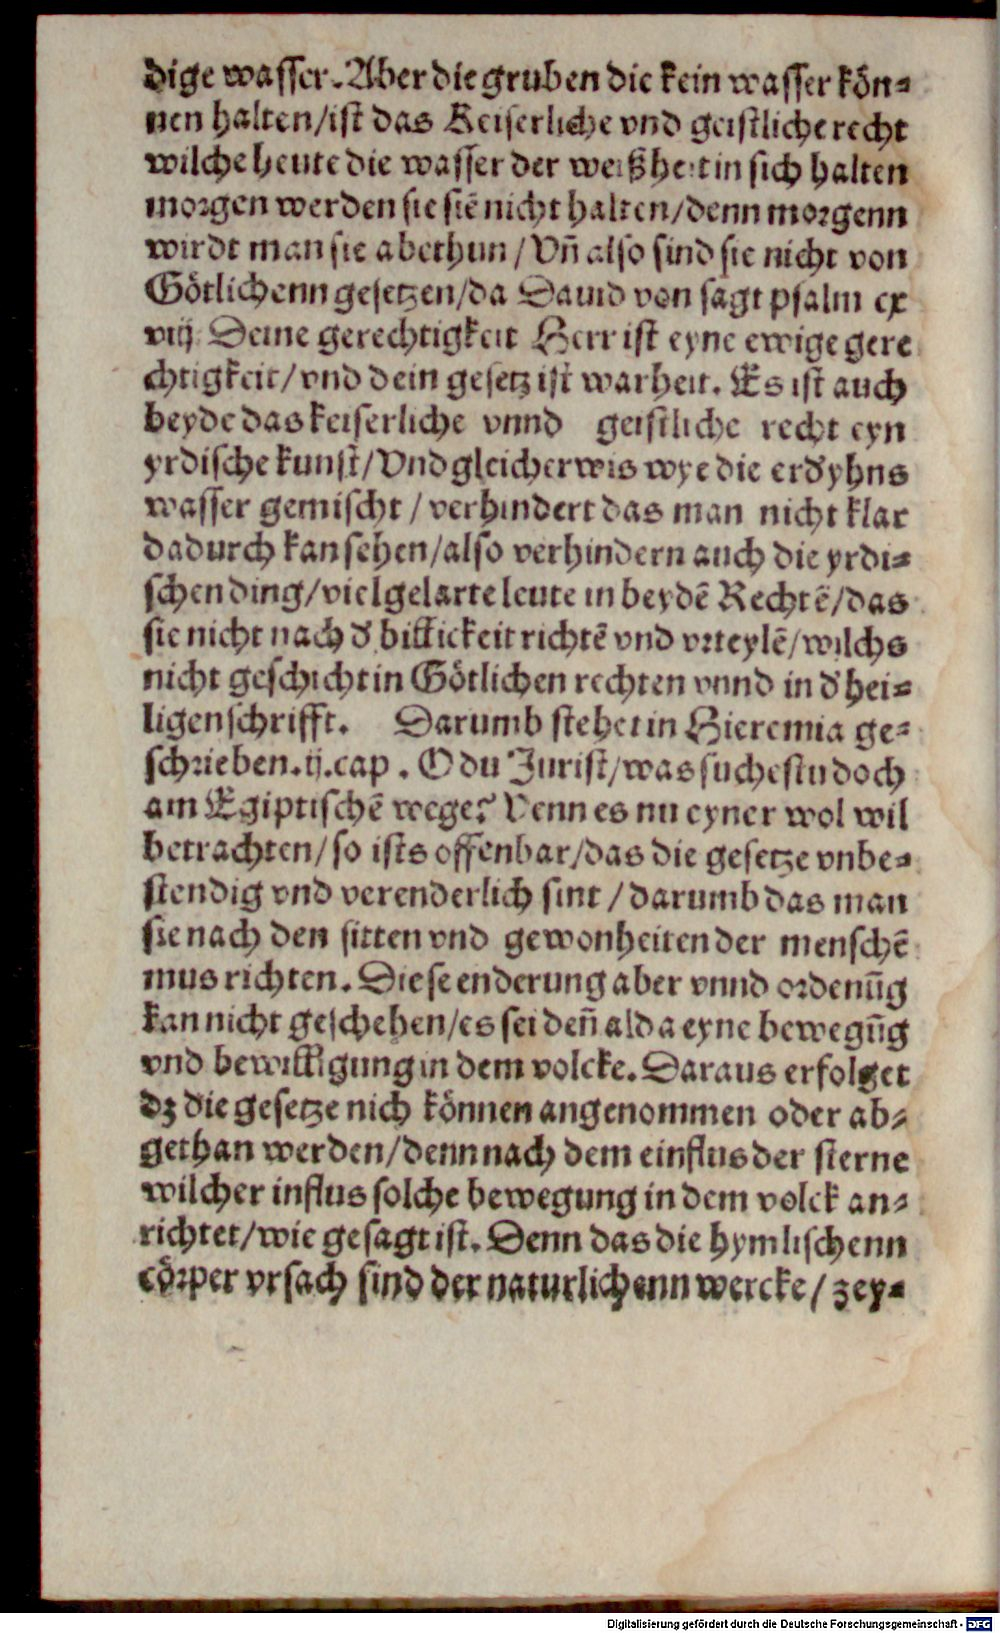 dige wasser. Aber die gruben die kein wasser kön⸗
nen halten/ist das Keiserliche vnd geistliche recht
wilche heute die wasser der weißheit in sich halten
morgen werden sie siē nicht halten/denn morgenn
wirdt man sie abethun/Vñ also sind sie nicht von
Götlichenn gesetzen/da Dauid von sagt psalm cx
viij Deine gerechtigkeit Herr ist eyne ewige gere
chtigkeit/vnd dein gesetz ist warheit. Es ist auch
beyde das keiserliche vnnd geistliche recht eyn
yrdische kunst/Vnd gleicherwis wye die erd̕ yhns
wasser gemischt/verhindert das man nicht klar
dadurch kan sehen/also verhindern auch die yrdi⸗
schen ding/viel gelarte leute in beydē Rechtē/das
sie nicht nach d̕ billickeit richtē vnd vrteylē/wilchs
nicht geschicht in Götlichen rechten vnnd in d̕ hei⸗
ligen schrifft. Darumb stehet in Hieremia ge⸗
schrieben.ij.cap. O du Jurist/was suchestu doch
am Egiptischē wege? Venn es nu eyner wol wil
betrachten/so ists offenbar/das die gesetze vnbe⸗
stendig vnd verenderlich sint/darumb das man
sie nach den sitten vnd gewonheiten der menschē
mus richten. Diese enderung aber vnnd ordenūg
kan nicht geschehen/es sei deñ alda eyne bewegūg
vnd bewilligung in dem volcke. Daraus erfolget
dz die gesetze nich können angenommen oder ab⸗
gethan werden/denn nach dem einflus der sterne
wilcher influs solche bewegung in dem volck an⸗
richtet/wie gesagt ist. Denn das die hymlischenn
cörper vrsach sind der naturlichenn wercke/zey⸗
Digitalisierung gefördert durch die Deutsche Forschungsgemeinschaft - DFG